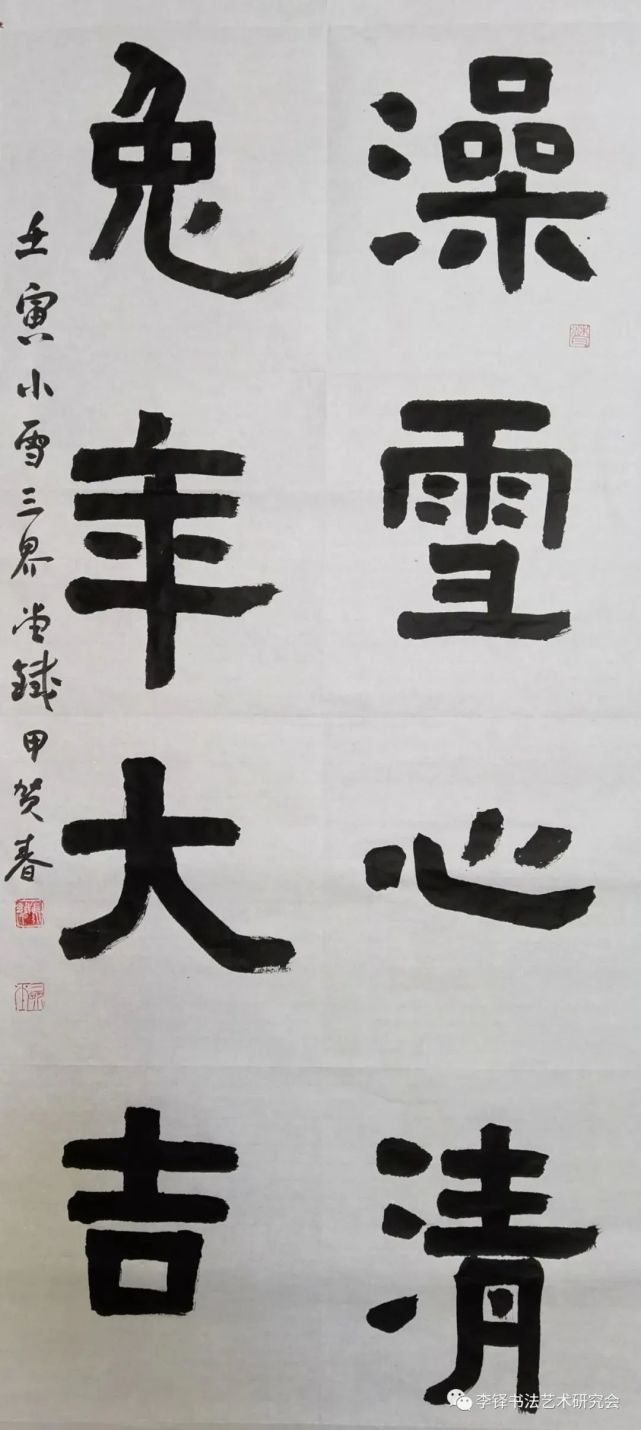 澡雪心清
兔年大吉
壬寅小雪三界堂铁甲贺春
李铎书法艺术研究会